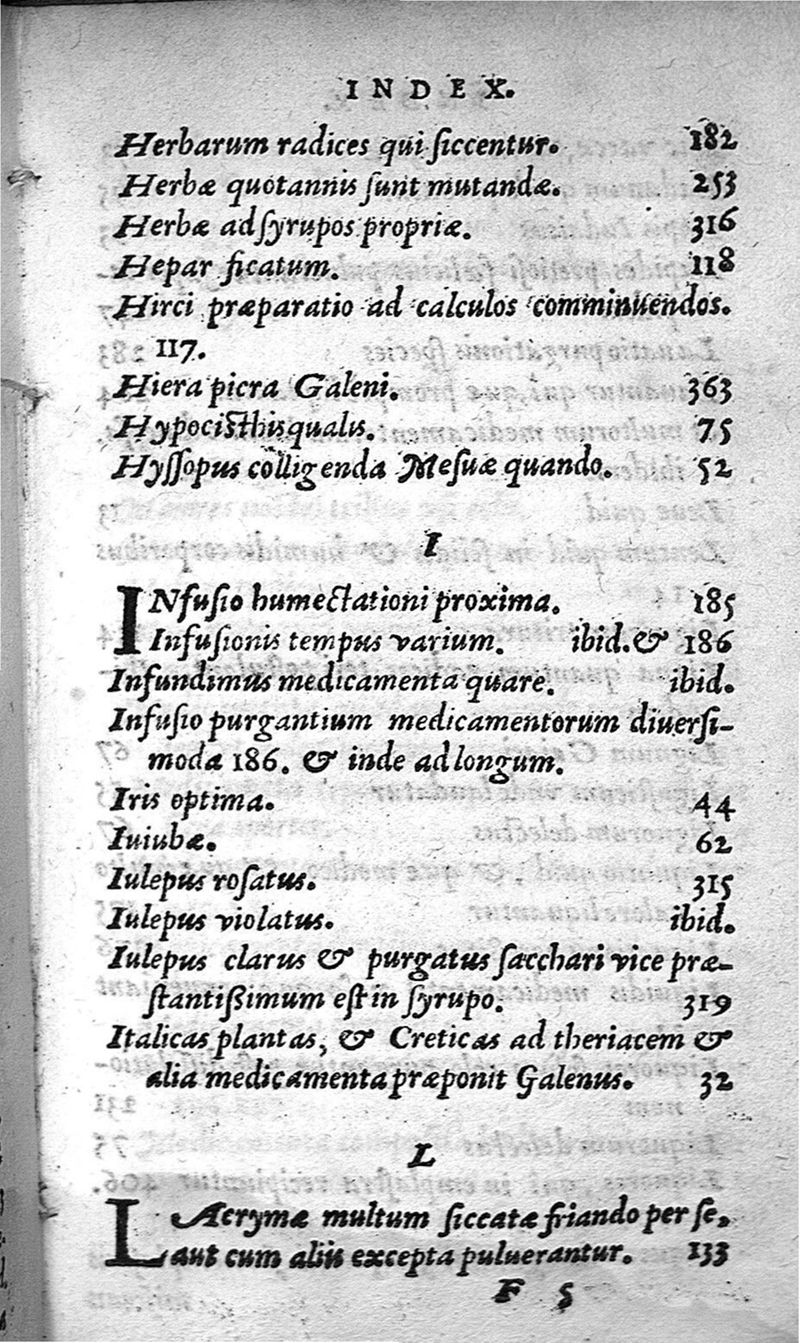 INDEX.
Herbarum radices qui siccentur. 182
Herbæ quotannis sunt mutandæ. 253
Herbæ ad syrupos propriæ. 316
Hepar ficatum. 118
Hirci præparatio ad calculos comminuendos.
117.
Hiera picra Galeni. 363
Hypocisthis qualis. 75
Hyssopus colligenda Mesuæ quando. 52
I
INfusio humectationi proxima. 185
Infusionis tempus varium. ibid. & 186
Infundimus medicamenta quare. ibid.
Infusio purgantium medicamentorum diuersi-
moda 186. & inde ad longum.
Iris optima. 44
Iuiubæ. 62
Iulepus rosatus. 315
Iulepus violatus. ibid.
Iulepus clarus & purgatus sacchari vice præ-
stantißimum est in syrupo. 319
Italicas plantas, & Creticas ad theriacem &
alia medicamenta præponit Galenus. 32
L
LAcrymæ multum siccatæ friando per se,
aut cum aliis excepta puluerantur. 133
F 5